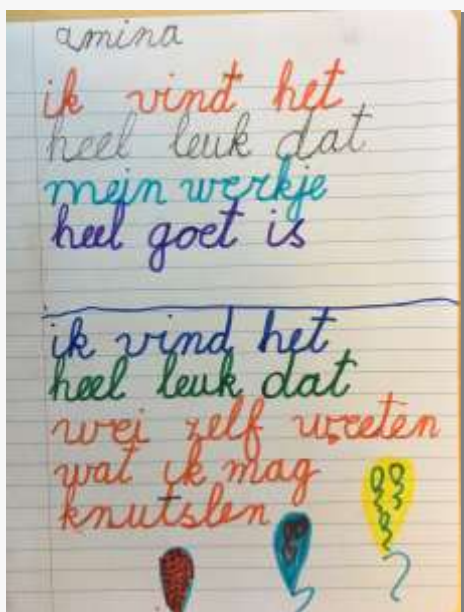 amina
ik vind het
heel leuk dat
mein werkje
heel goet is
ik vind het
heel leuk dat
wei zelf weeten
wat ik mag
knutslen